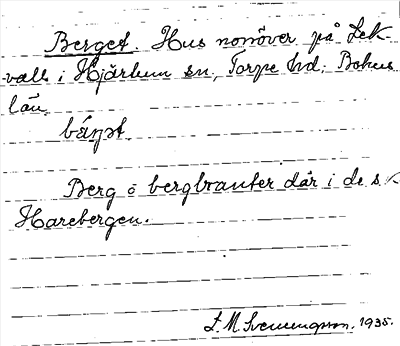 Berget. Hus norröver på Lek-
valls i Hjärtum sn, Torpe hd; Bohus
län.
bárjət
Berg o bergbranter där i de s.k.
Harebergen.
L. M. Svenungsson. 1935.